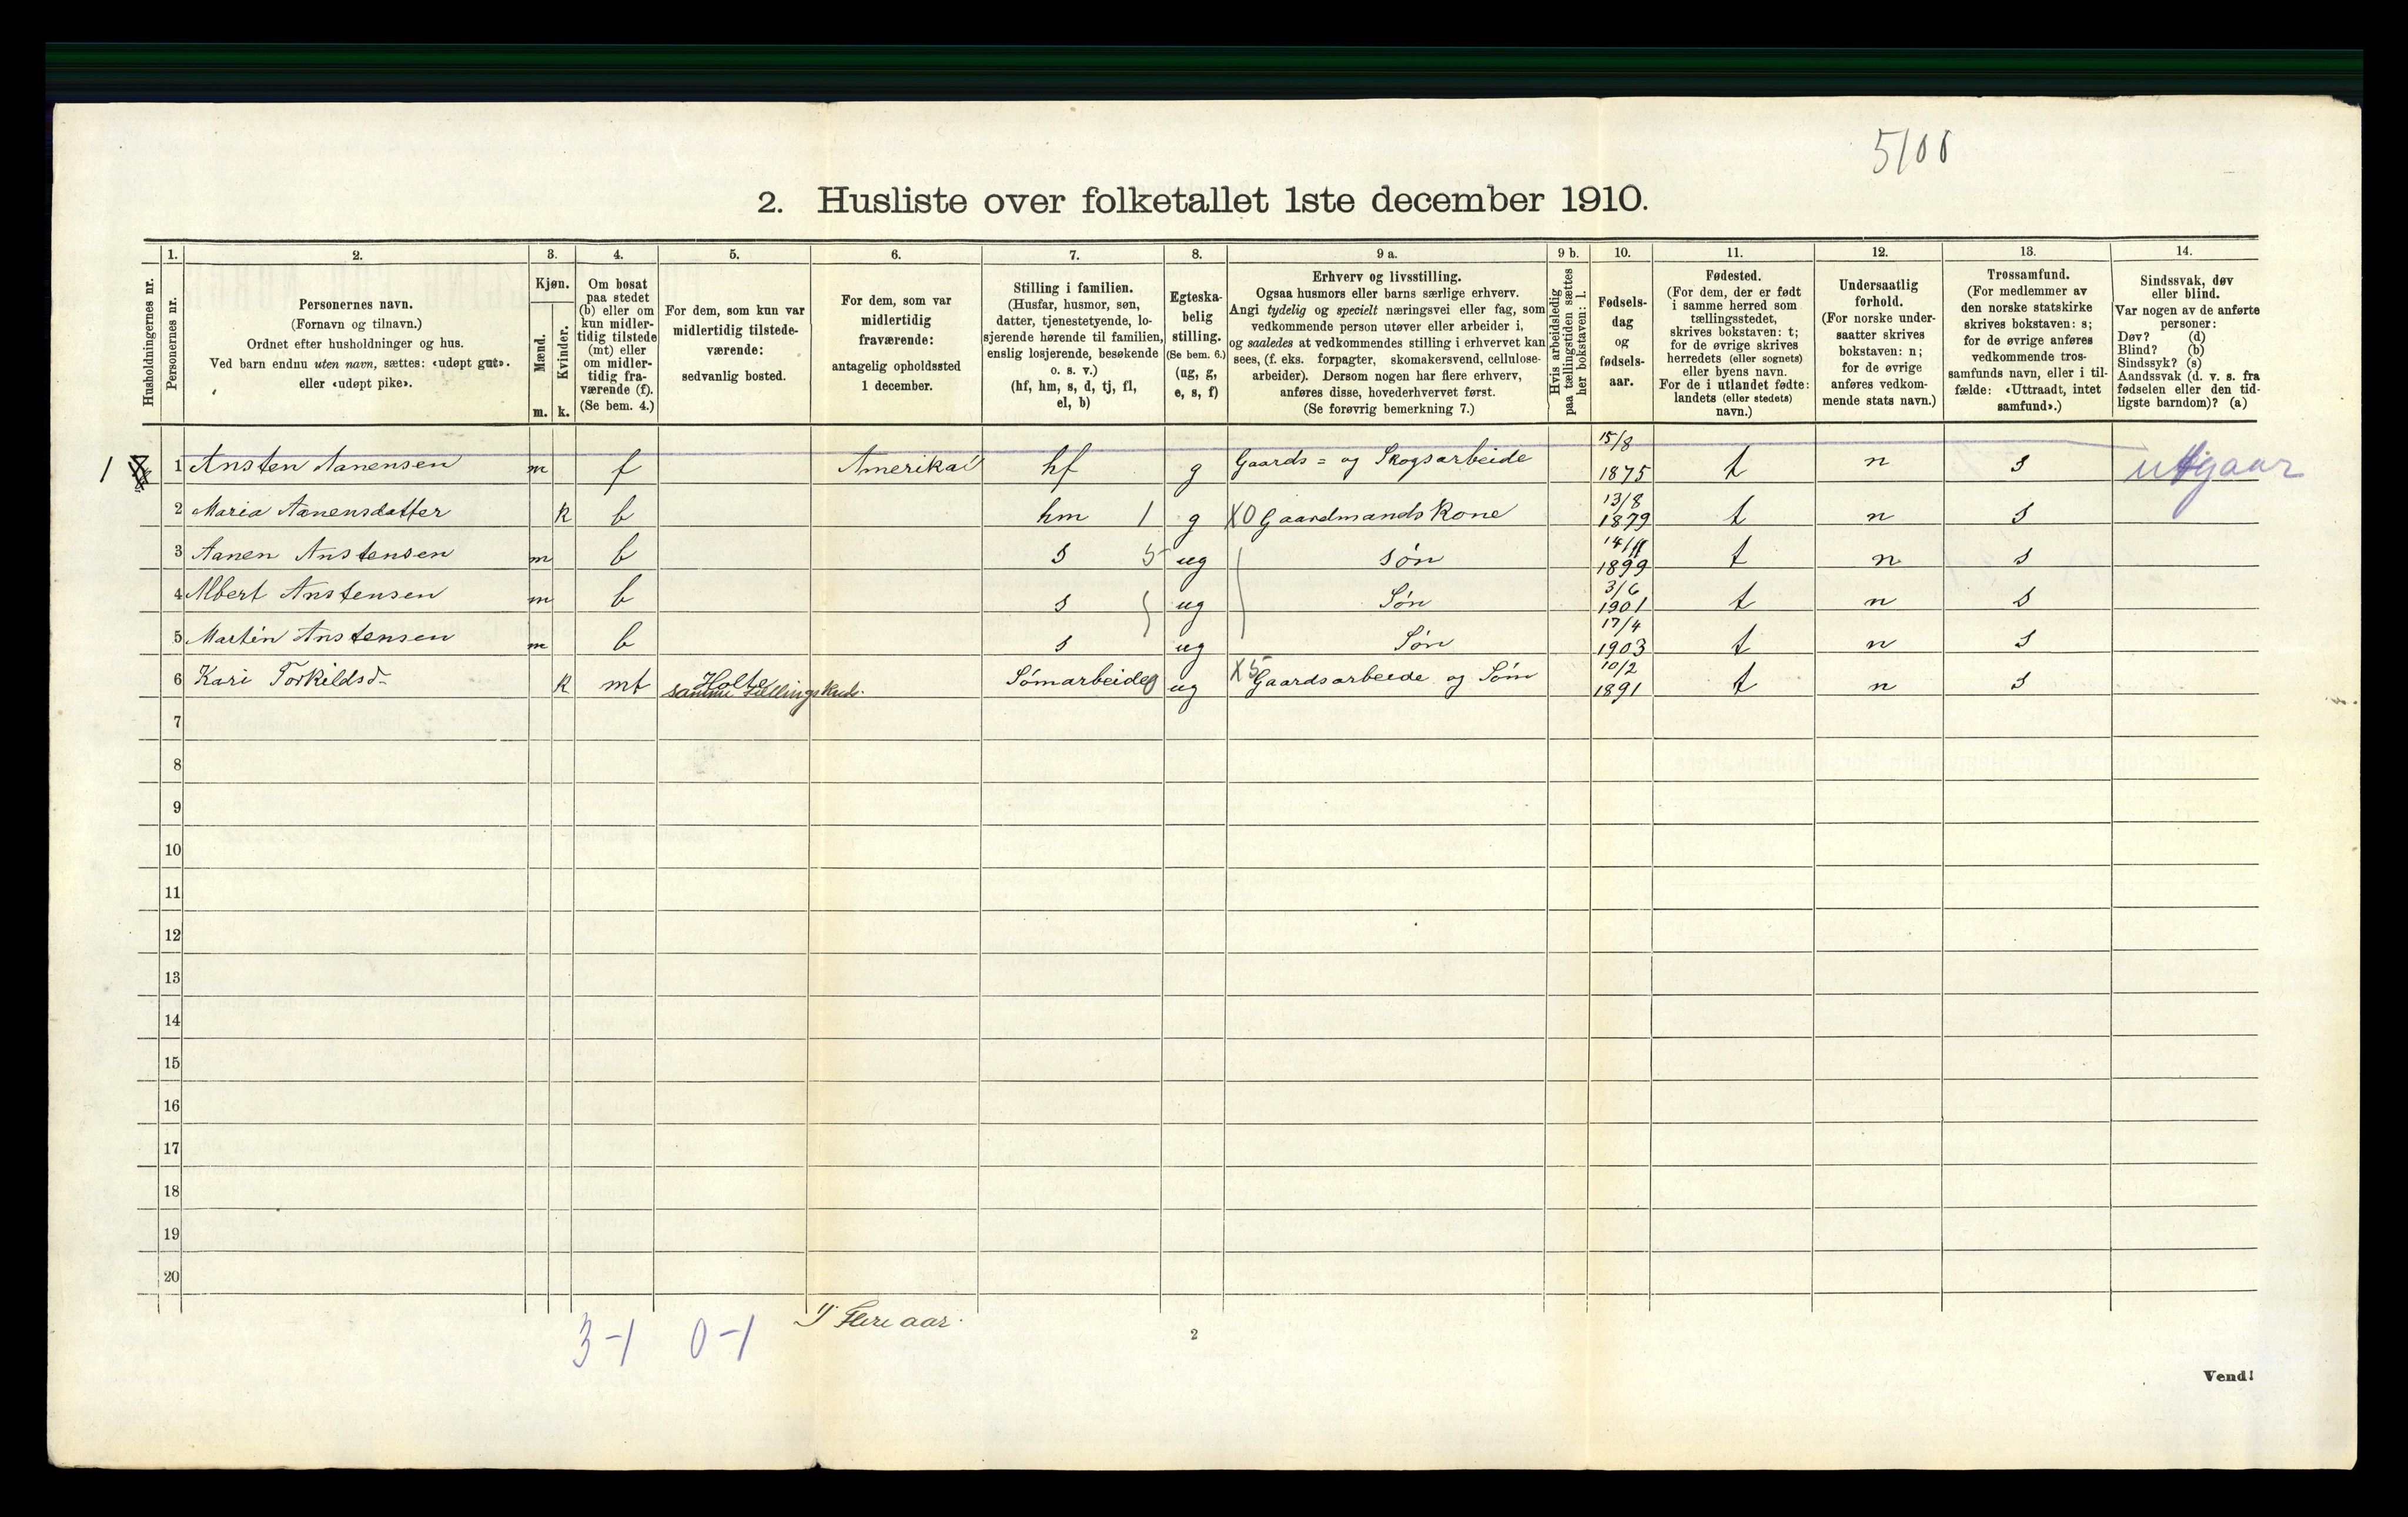 5100
2. Husliste over folketallet 1ste december 1910.
Husholdningernes nr.
1.
Personernes nr.
2.
Personernes navn.
(Fornavn og tilnavn.)
Ordnet efter husholdninger og hus.
Ved barn endnu uten navn, sættes: «udøpt gut».
eller «udøpt pike».
3.
Kjøn.
Mænd.
Kvinder.
m. k.
4.
Om bosat
paa stedet
(b) eller om
kun midler-
tidig tilstede
(mt) eller
om midler-
tidig fra-
værende (f).
(Se bem. 4.)
5.
For dem, som kun var
midlertidig tilstede-
værende:
sedvanlig bosted.
6.
For dem, som var
midlertidig
fraværende:
antagelig opholdssted
1 december.
7.
Stilling i familien.
(Husfar, husmor, søn,
datter, tjenestetyende, lo-
sjerende hørende til familien,
enslig losjerende, besøkende
o. s. v.)
(hf, hm, s, d, tj, fl,
el, b)
8.
Egteska-
belig
stilling.
(Se bem. 6.)
(ug, g,
e, s, f)
9 a.
Erhverv og livsstilling.
Ogsaa husmors eller barns særlige erhverv.
Angi tydelig og specielt næringsvei eller fag, som
vedkommende person utøver eller arbeider i,
og saaledes at vedkommendes stilling i erhvervet kan
sees, (f. eks. forpagter, skomakersvend, cellulose-
arbeider). Dersom nogen har flere erhverv,
anføres disse, hovederhvervet først.
(Se forøvrig bemerkning 7.)
9 b.
Hvis arbeidsledig
paa tællingstiden sættes
her bokstaven: l.
10.
Fødsels-
dag
og
fødsels-
aar.
11.
Fødested.
(For dem, der er født
i samme herred som
tællingsstedet,
skrives bokstaven: t;
for de øvrige skrives
herredets (eller sognets)
eller byens navn.
For de i utlandet fødte:
landets (eller stedets)
navn.)
12.
Undersaatlig
forhold.
(For norske under-
saatter skrives
bokstaven: n;
for de øvrige
anføres vedkom-
mende stats navn.)
13.
Trossamfund.
(For medlemmer av
den norske statskirke
skrives bokstaven: s;
for de øvrige anføres
vedkommende tros-
samfunds navn, eller i til-
fælde: «Uttraadt, intet
samfund».)
14.
Sindssvak, døv
eller blind.
Var nogen av de anførte
personer:
Døv? (d)
Blind? (b)
Sindssyk? (s)
Aandssvak (d. v. s. fra
fødselen eller den tid-
ligste barndom)? (a)
1 1 Ansten Aanensen m f Amerika 1) hf g Gaards= og Skogsarbeide 15/8 1875 t n s utgaar
2 Maria Aanensdatter k b hm 1 g X0 Gaardmands Kone 13/8 1879 t n s
3 Aanen Anstensen m b s 5 ug søn 14/11 1899 t n s
4 Albert Anstensen m b s ug Søn 3/6 1901 t n s
5 Martin Anstensen m b s ug Søn 17/4 1903 t n s
6 Kari Torkildsd. k mt Holte samme Tællingskrds. Sømarbeide ug X5 Gaardsarbeide og Søm 10/2 1891 t n s
7
8
9
10
11
12
13
14
15
16
17
18
19
20
3-1 0-1
1) Flere aar.
2
Vend!